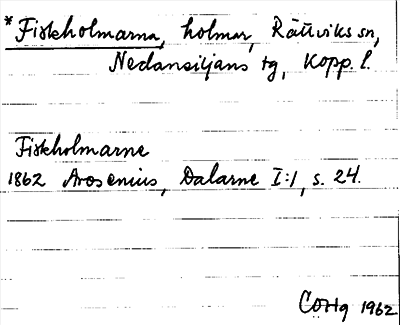 *Fiskholmarna, holmar, Rättviks sn,
Nedansiljans tg, Kopp. l.
Fiskholmarne
1862 Arosenius, Dalarne I:1, s. 24.
1962